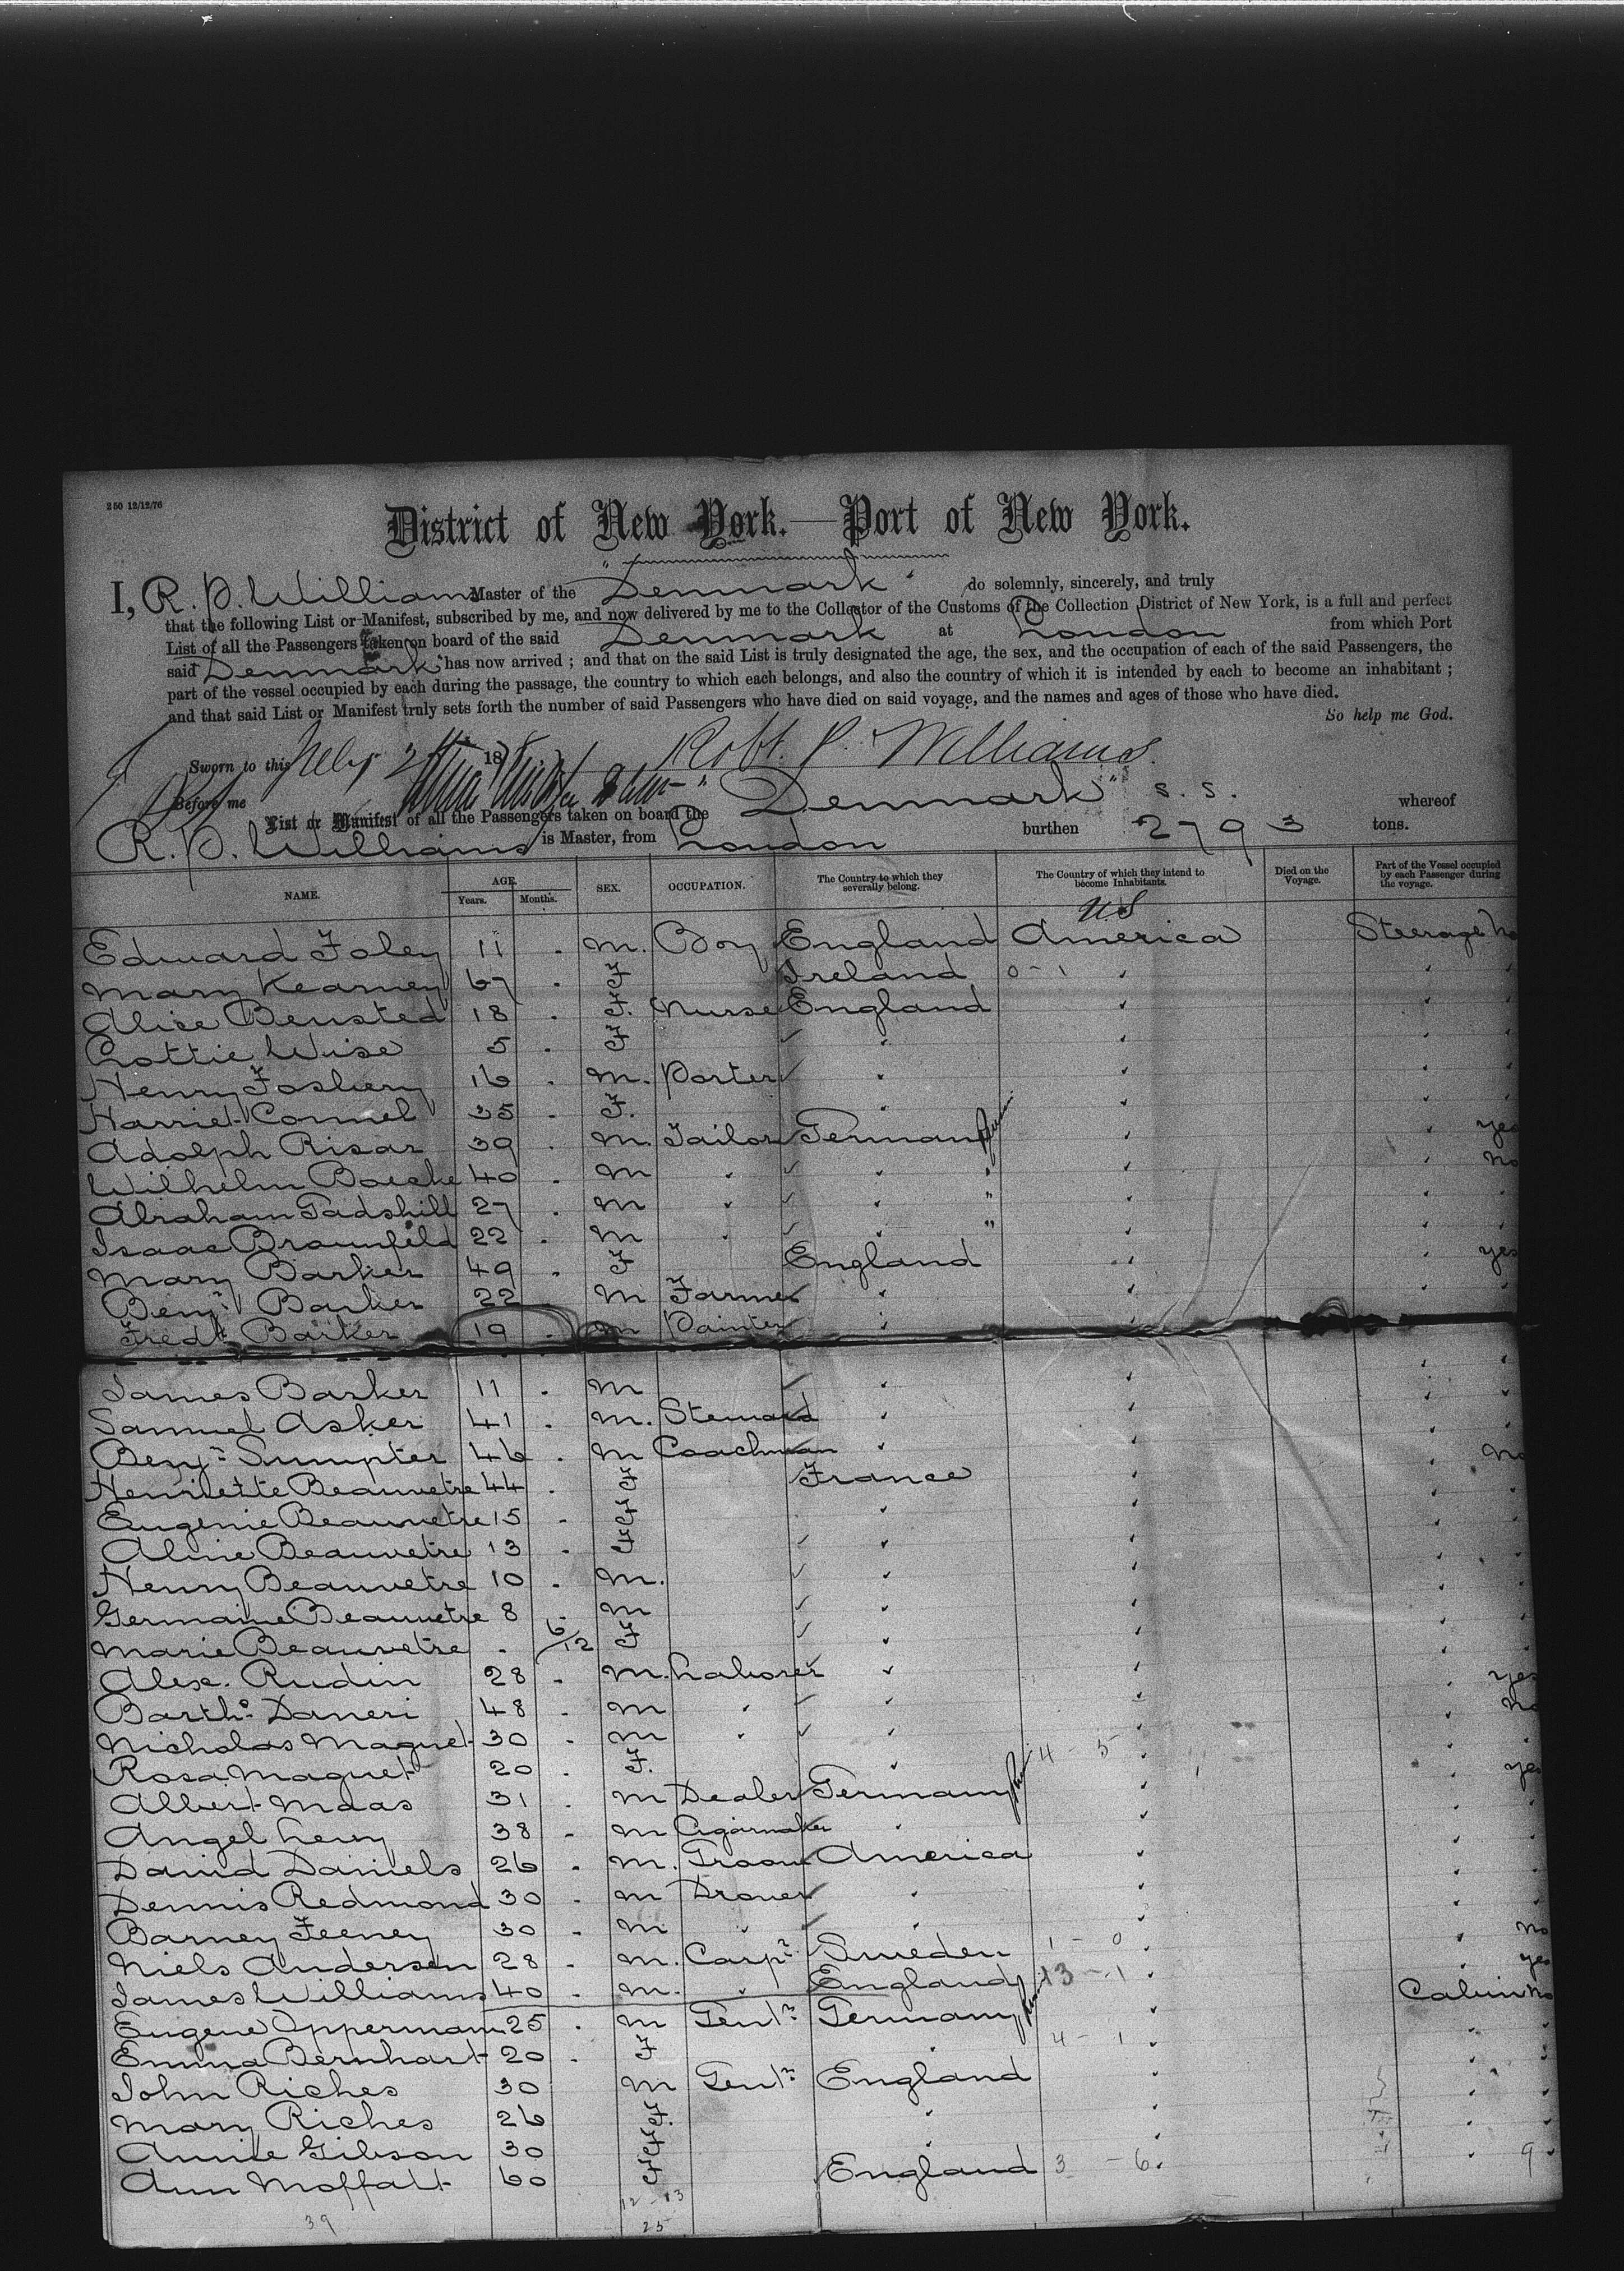 250 12/12/76
District of New York.—Port of New York.
I, R. P. Williams Master of the "Denmark" do solemnly, sincerely, and truly
that the following List or Manifest, subscribed by me, and now delivered by me to the Collector of the Customs of the Collection District of New York, is a full and perfect
List of all the Passengers taken on board of the said Denmark at London from which Port
said "Denmark" has now arrived ; and that on the said List is truly designated the age, the sex, and the occupation of each of the said Passengers, the
part of the vessel occupied by each during the passage, the country to which each belongs, and also the country of which it is intended by each to become an inhabitant ;
and that said List or Manifest truly sets forth the number of said Passengers who have died on said voyage, and the names and ages of those who have died.
So help me God.
Sworn to this 18 Robt. P. Williams.
Before me
List or Manifest of all the Passengers taken on board the "Denmark" S. S. whereof
R. P. Williams is Master, from London burthen 2793 tons.
NAME. AGE. Years. Months. SEX. OCCUPATION. The Country to which they severally belong. The Country of which they intend to become Inhabitants. Died on the Voyage. Part of the Vessel occupied by each Passenger during the voyage.
US
Edward Foley 11 . M. Boy England America Steerage no
Mary Kearney 67 . F Ireland 0-1 "
Alice Bensted 18 . F. Nurse England "
Lottie Wise 5 . F " "
Henry Foskery 16 . M. Porter " "
Harriet Connel 35 . F. " "
Adolph Risar 39 . M. Tailor Germany " yes
Wilhelm Boeske 40 . M " " " no
Abraham Gadshill 27 . M " " "
Isaac Braunfeld 22 . M " " "
Mary Barker 49 . F England " yes
Benjn Barker 22 M Farmer " "
Fredk Barker 19 . M Painter " "
James Barker 11 . M " "
Samuel Asker 41 . M. Steward " "
Benjn Sumpter 46 . M Coachman " " no
Henriette Beauvetre 44 . F France "
Eugenie Beauvetre 15 . F " "
Aline Beauvetre 13 . F " "
Henry Beauvetre 10 . M. " "
Germaine Beauvetre 8 . M " "
Marie Beauvetre . 6/12 F " "
Alex. Rudin 28 . M. Laborer " " yes
Bartho. Daneri 48 . M " " " no
Nicholas Maguet 30 . M " " "
Rosa Maguet 20 . F. " 4 5 " yes
Albert Maas 31 . M Dealer Germany "
Angel Levy 38 . M Cigarmaker " "
David Daniels 26 . M. Groom America "
Dennis Redmond 30 . M Drover " "
Barney Feeney 30 . M " " " no
Niels Andersen 28 . M. Carpr Sweden 1-0 " yes
James Williams 40 . M. " England 13-1 " Cabin no
Eugene Opperman 25 . M Gentn Germany "
Emma Bernhart 20 . F " 4-1 "
John Riches 30 M Gentn England "
Mary Riches 26 F. " "
Annie Gibson 30 F " "
Ann Moffatt 60 F England 3-6 " 9
12-13
39 25